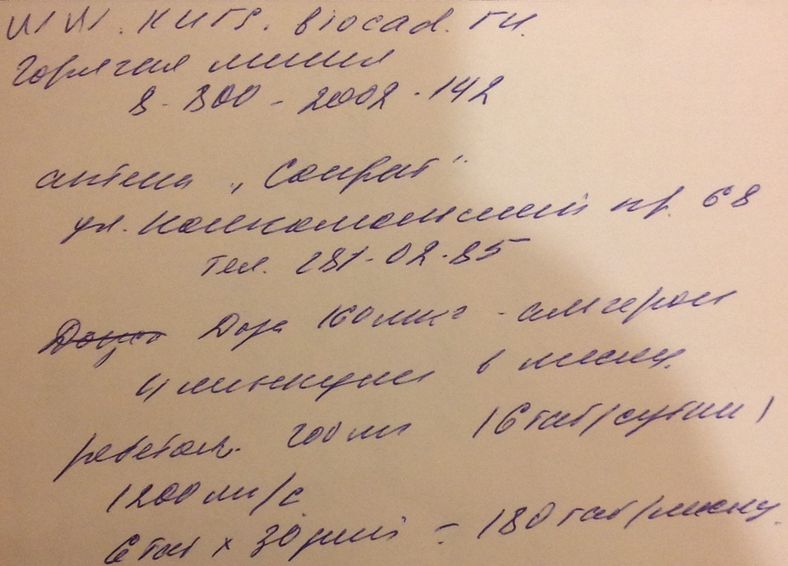 WW. HUTS. biocad. ru.
Горячая линия
8-800-2002-142
аптека „Сократ”
ул. Комсомольский пр. 68
тел. 281-02-85
Доза 160 мкг - альгерон
4 инъекции в месяц.
ребетол. 200 мг (6 таб/сутки)
1200 мг/с
6 таб х 30 дней = 180 таб/месяц.